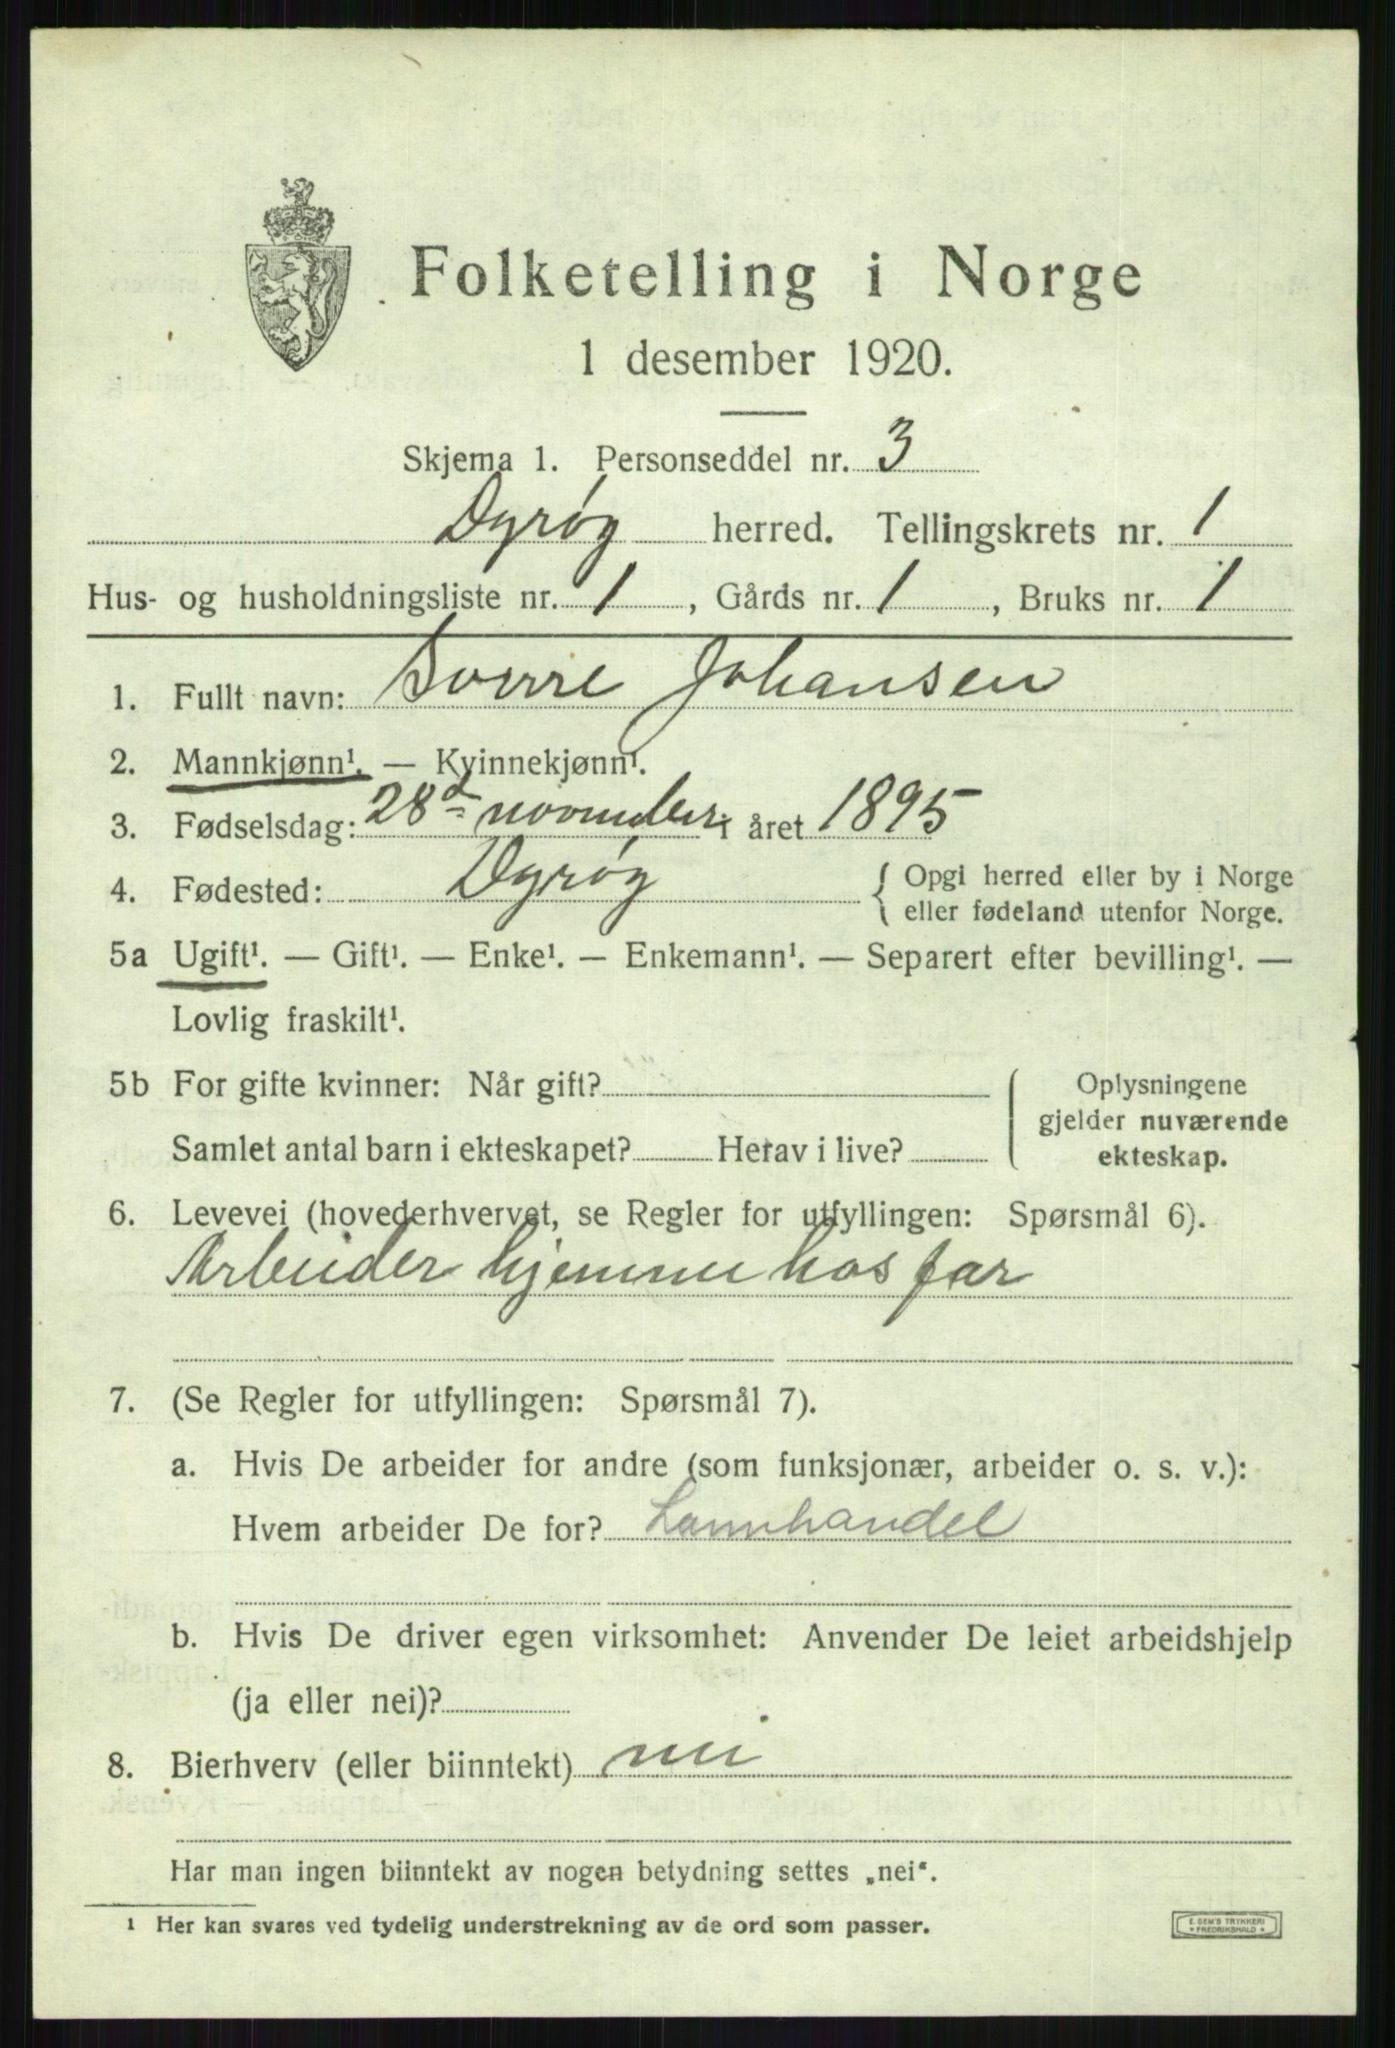 Folketelling i Norge
1 desember 1920.
Skjema 1. Personseddel nr. 3
Dyrøy herred. Tellingskrets nr. 1
Hus- og husholdningsliste nr. 1, Gårds nr. 1, Bruks nr. 1
1. Fullt navn: Sverre Johansen
2. Mannkjønn¹. — Kvinnekjønn¹.
3. Fødselsdag: 28d november i året 1895
4. Fødested: Dyrøy { Opgi herred eller by i Norge
eller fødeland utenfor Norge.
5a Ugift¹. — Gift¹. — Enke¹. — Enkemann¹. — Separert efter bevilling¹. —
Lovlig fraskilt¹.
5b For gifte kvinner: Når gift? ( Oplysningene
gjelder nuværende
Samlet antal barn i ekteskapet? Herav i live? ekteskap.
6. Levevei (hovederhvervet, se Regler for utfyllingen: Spørsmål 6).
Arbeider hjemme hos far
7. (Se Regler for utfyllingen: Spørsmål 7).
a. Hvis De arbeider for andre (som funksjonær, arbeider o. s. v.):
Hvem arbeider De for? Lannhandel
b. Hvis De driver egen virksomhet: Anvender De leiet arbeidshjelp
(ja eller nei)?
8. Bierhverv (eller biinntekt) nei
Har man ingen biinntekt av nogen betydning settes „nei“.
1 Her kan svares ved tydelig understrekning av de ord som passer.
E. SEM'S TRYKKERI
* FREDRIKSHALD *